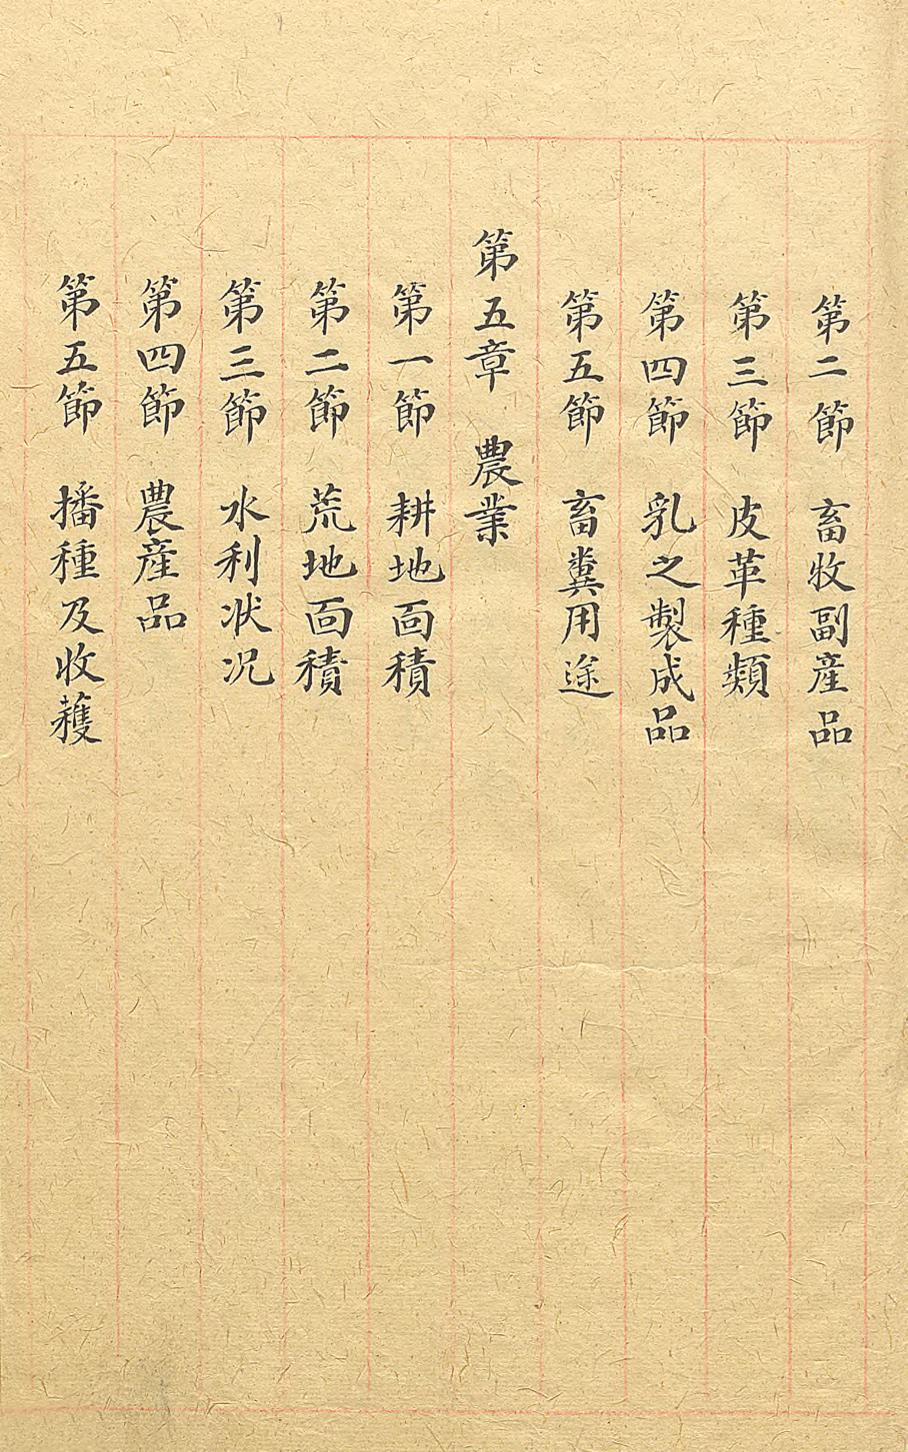 第二節　畜牧副産品
第三節　皮革種類
第四節　乳之製成品
第五節　畜糞用途
第五章　農業
第一節　耕地面積
第二節　荒地面積
第三節　水利状况
第四節　農産品
第五節　播種及收穫